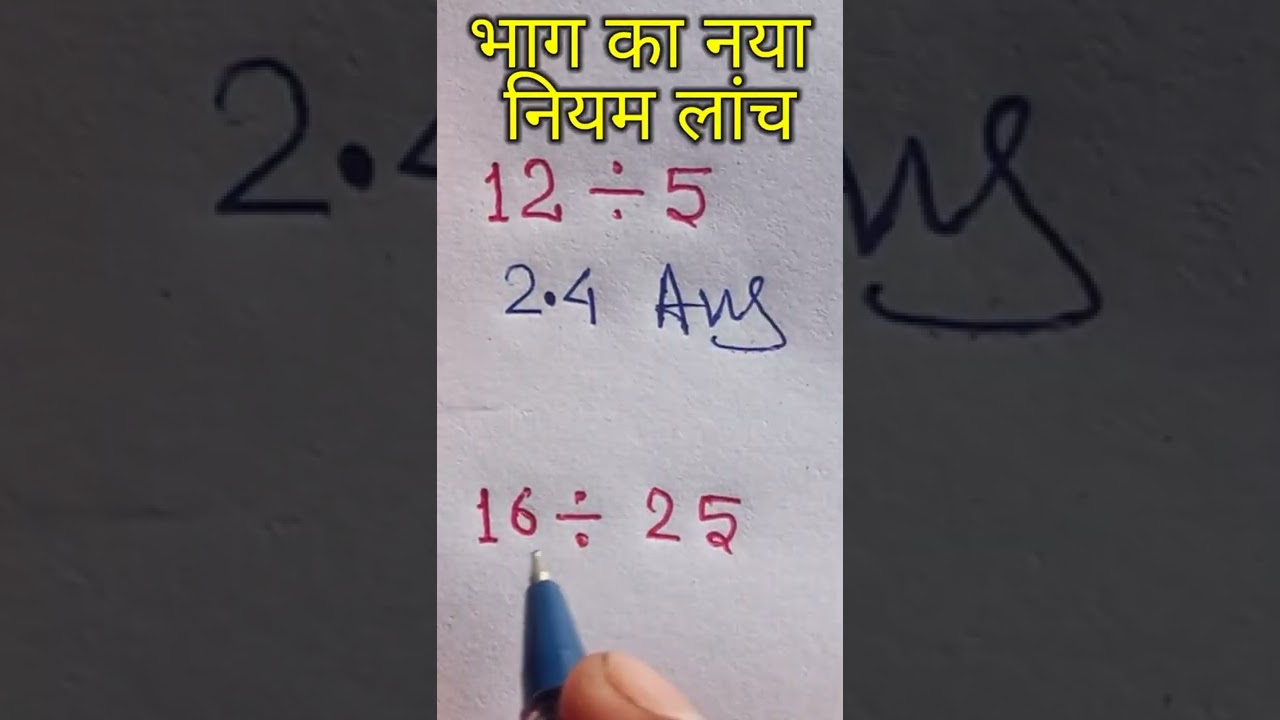 भाग का नया
नियम लांच
12 ÷ 5
2.4 Ans
16 ÷ 25